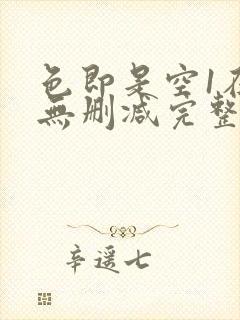 色即是空1在
無删减完整
辛遥七